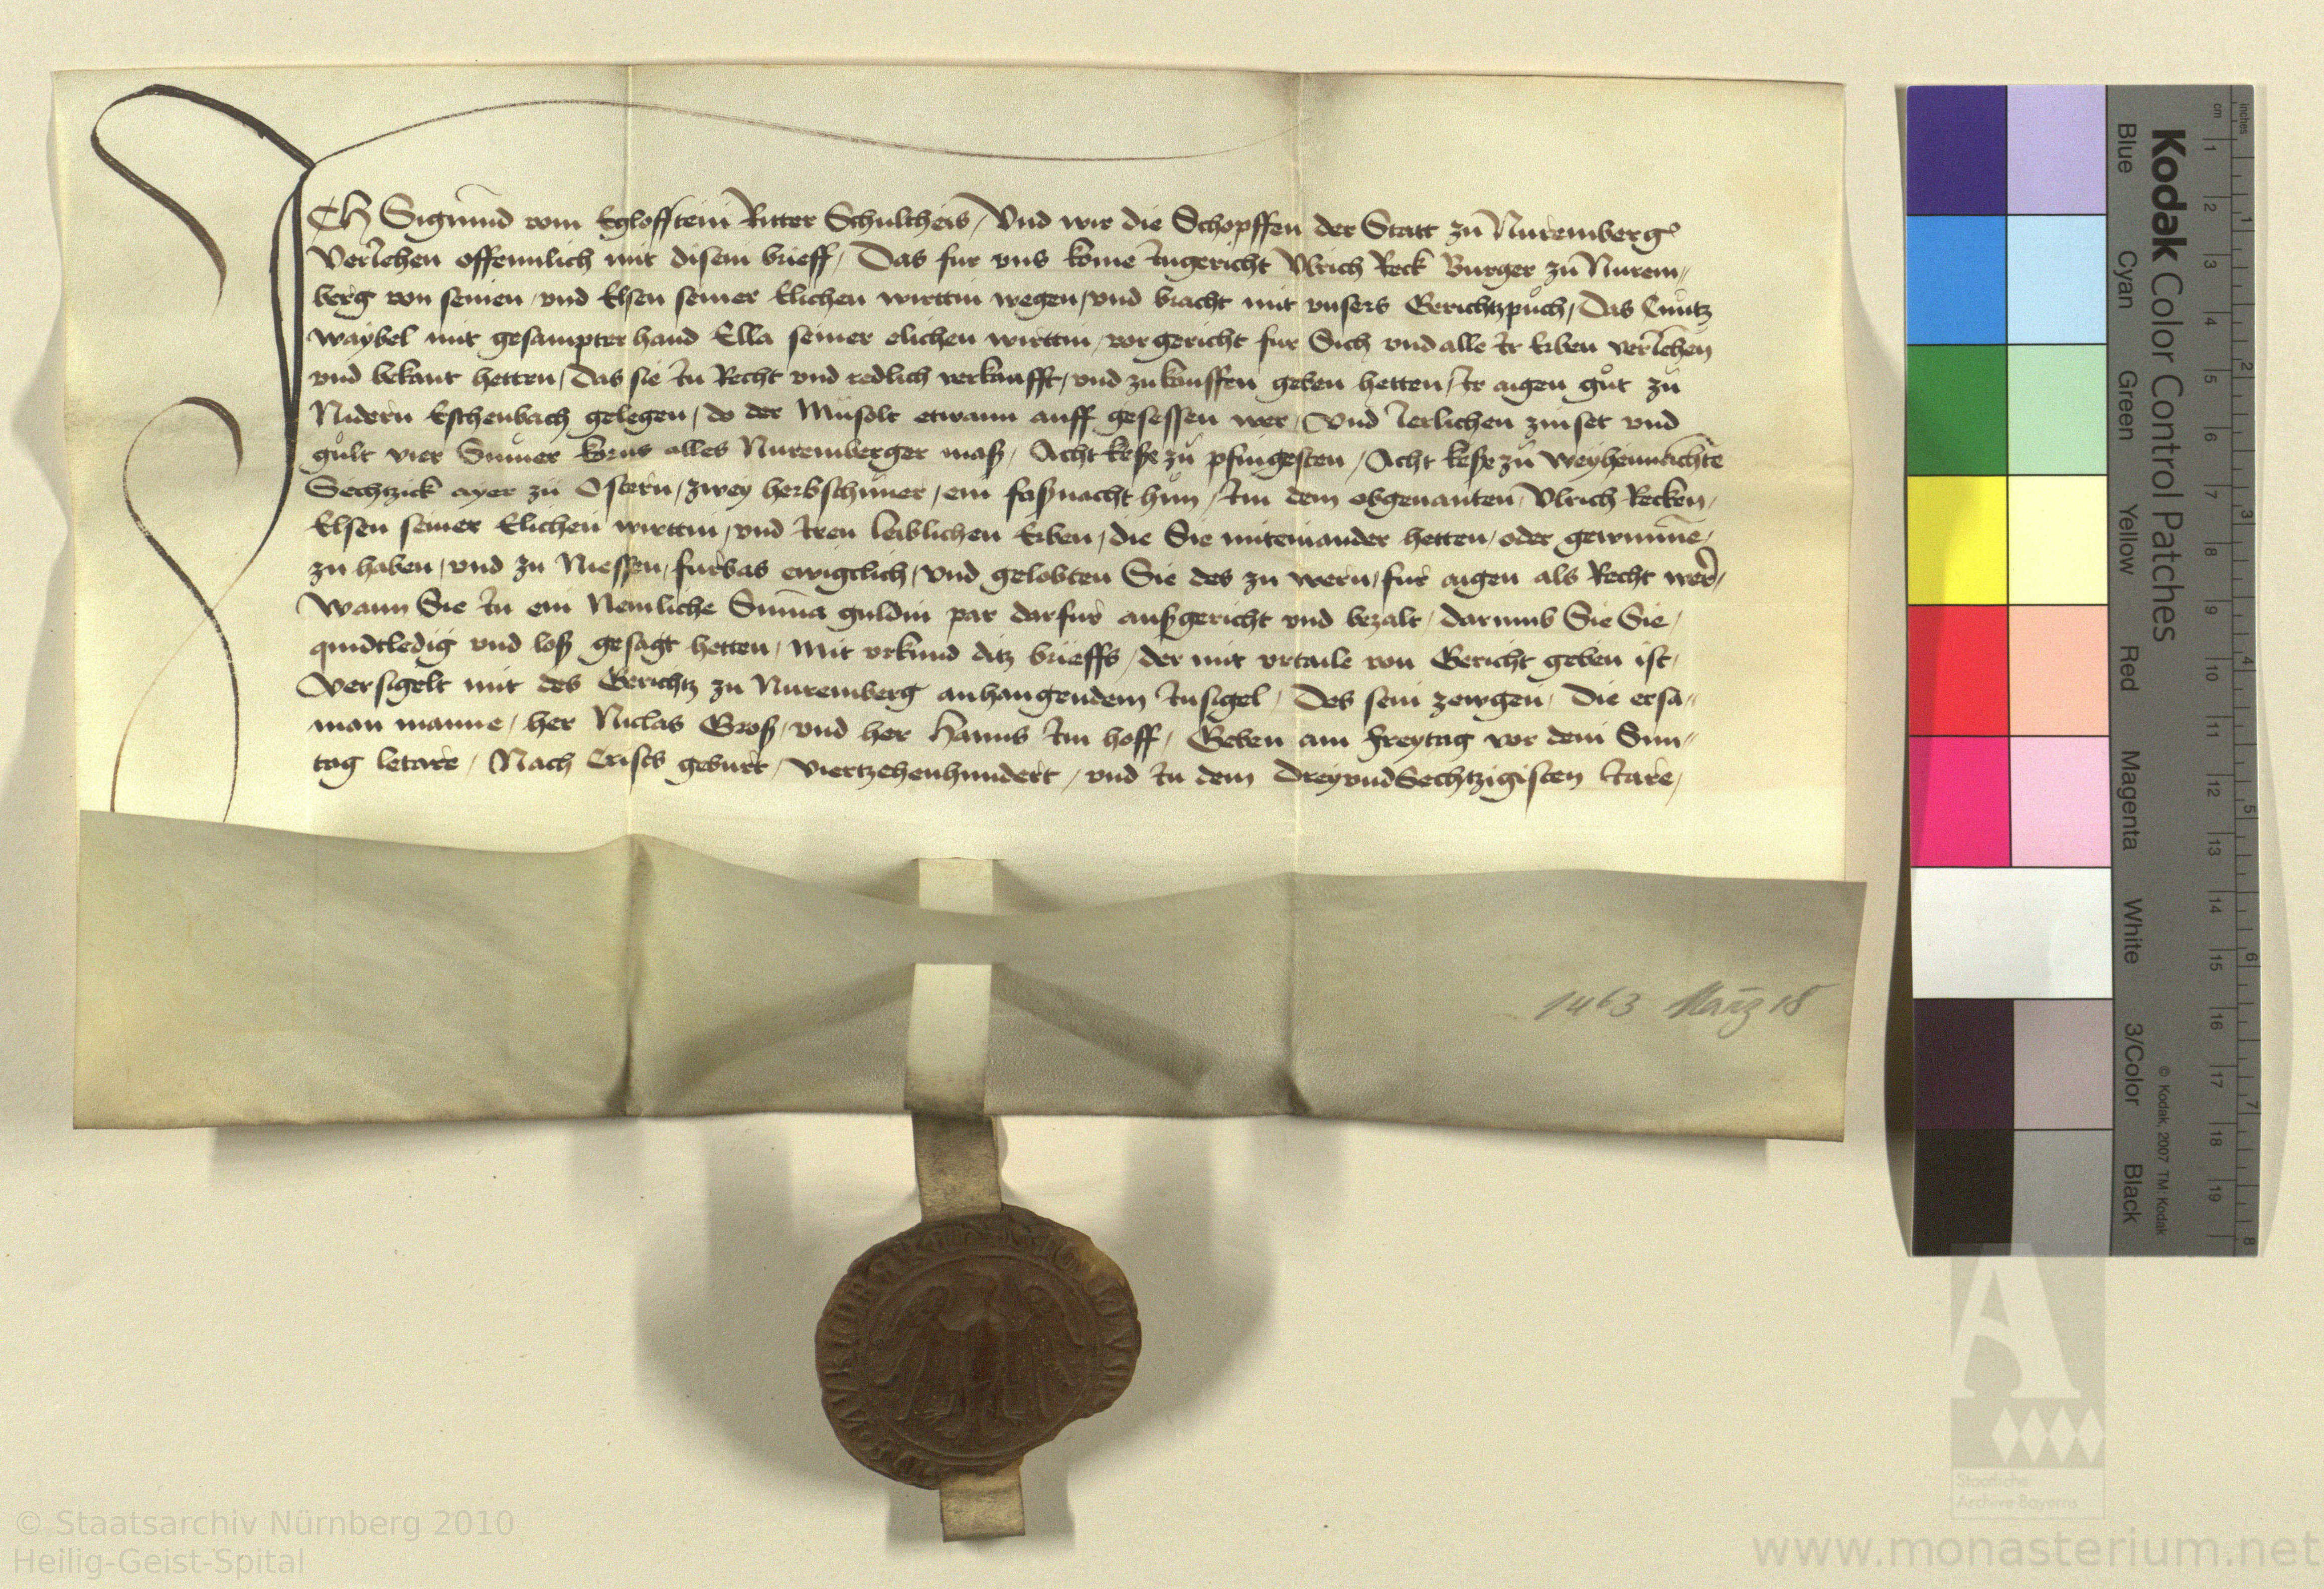 ICh Sigmund vom Egloffstein Ritter Schultheis / Vnd wir die Schopffen der Statt zu Nuremberg
Veriehen offennlich mit disem brieff / Das fur vns kome Ingericht Vlrich Reck Burger zu Nurem//
berg von seinen / vnd Elsen seiner Elichen wirttin wegen / vnd bracht mit vnsers Gerichtzpuch / Das Cuntz
waybel mit gesampter hand Ella seiner elichen wirttin / vor gericht fur Sich vnd alle Ir Erben veriehen
vnd bekant hetten / Das sie In Recht vnd redlich verkaufft / vnd zukauffen geben hetten / Ir aigen gut zu
Nidern Eschenbach gelegen / do der Müsolt etwann auff gesessen wer / Vnd Ierlichen zinset vnd
gult vier Sumer korns alles Nuremberger mass / Acht kese zu pfingesten / Acht kese zu weyhennachte
Sechtzick ayer zu Ostern / zwey herbsthuner / ein fassnacht hun / Im dem obgenanten Vlrich Recken /
Elsen seiner Elichen wirttin / vnd Iren leiblichen Erben / die Sie miteinander hetten / oder gewunne /
zu haben / vnd zu Niessen / furbas ewigclich / Vnd gelobten Sie des zu wern / fur aigen als Recht wer /
Wann Sie In ein Nemliche Summa guldin par darfur aussgericht vnd bezalt / darumb Sie Sie /
quidtledig vnd loss gesagt hetten / Mit vrkund ditz brieffs / der mit vrtaile von Gericht geben ist /
Versigelt mit des Gerichtz zu Nuremberg anhangendem Insigel / Des sein zewgen / Die ersa//
man manne / her Niclas Gross / vnd her Hanns Im hoff / Geben am Freytag vor dem Sun//
tag letare / Nach Crists geburt / Viertzehenhundert / vnd In dem DreyvndSechtzigisten Iare /
1463 März 18
Kodak Color Control Patches
Blue Cyan Green Yellow Red Magenta White 3/Color Black
© Kodak, 2007 TM: Kodak
inches
1 2 3 4 5 6 7 8
cm
1 2 3 4 5 6 7 8 9 10 11 12 13 14 15 16 17 18 19
A
Staatliche
Archive Bayerns
© Staatsarchiv Nürnberg 2010
Heilig-Geist-Spital
www.monasterium.net